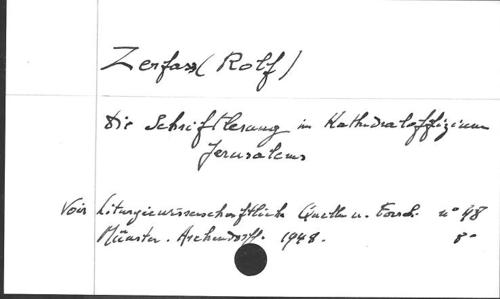 Zerfass (Rolf)
Die Schriftlesung im Kathedraloffizium
Jerusalems
Voir Liturgiewissenschaftliche Quellen u. Forsch. n° 48
Münster. Aschendorff. 1968. 8°